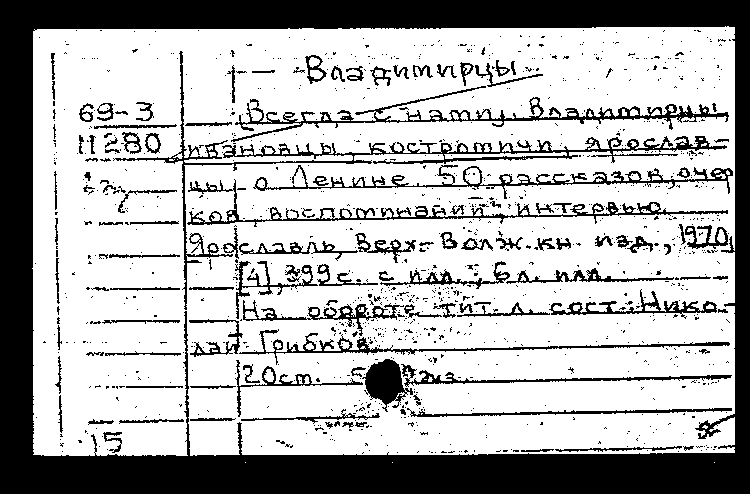 Владимирцы
69-3
11280
[Всегда с нами]. Владимирцы,
ивановцы, костромичи, ярослав-
цы о Ленине. 50 рассказов, очер
ков, воспоминаний, интервью.
Ярославль, Верх.-Волж. кн. изд., 1970,
[4], 399 с. с илл.; 6 л. илл.
На обороте тит. л. сост.: Нико-
лай Грибков
20 cm.
15